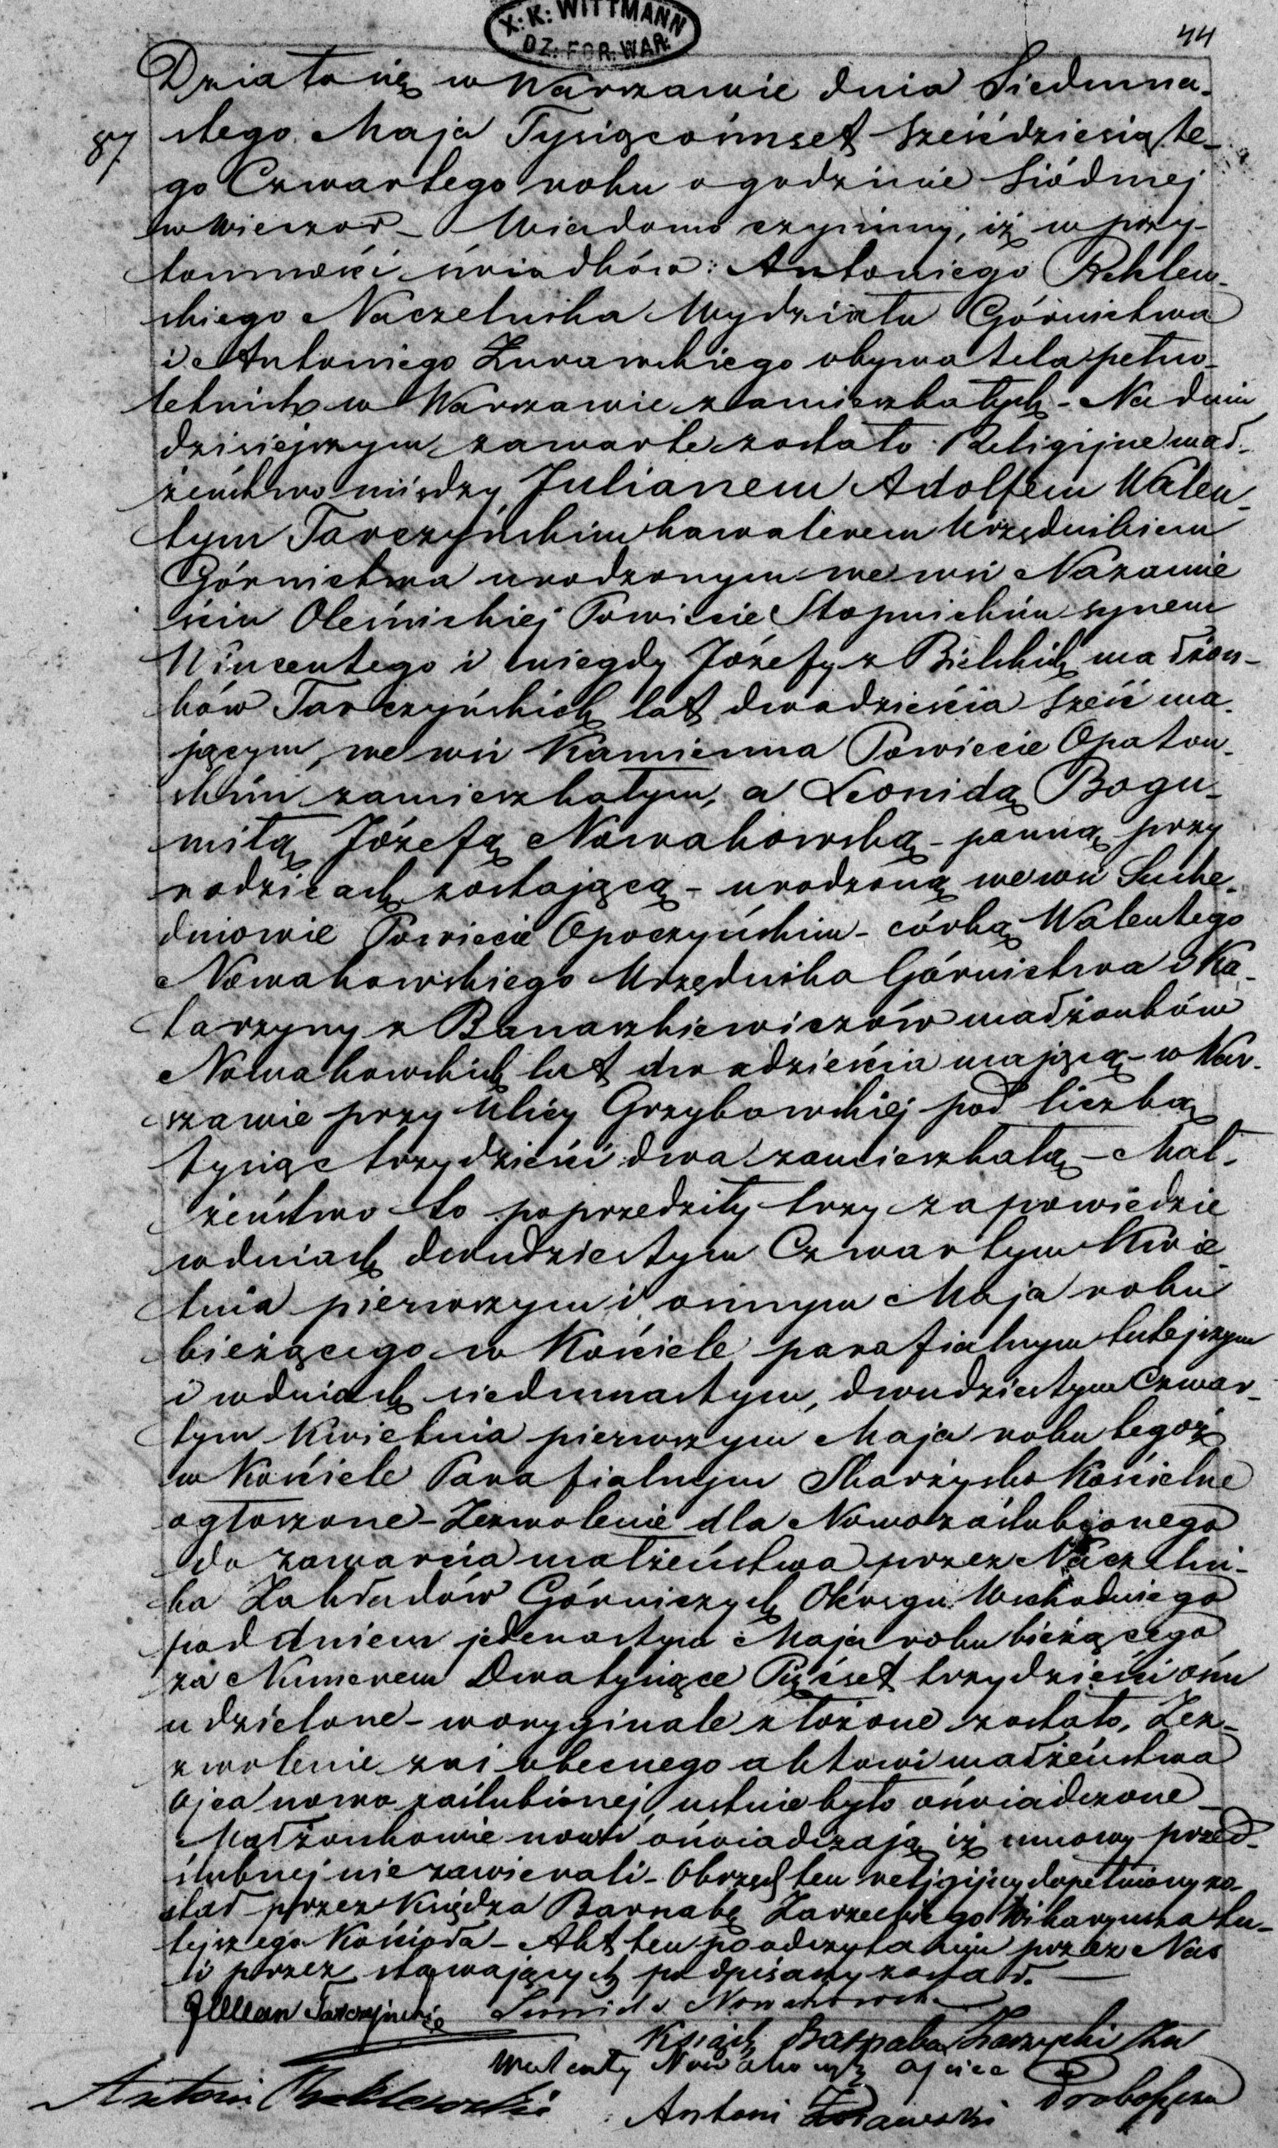 X: K: WITTMANN
DZ: FOR. WAR.
44
87
Działo się w Warszawie dnia Siedmna-
stego Maja Tysiącośmset sześćdziesiąte-
go Czwartego roku o godzinie siódmej
w wieczor – Wiadomo czynimy, iż w przy-
tomności świadków: Antoniego
skiego Naczelnika Wydziału Górnictwa
i Antoniego Żurawskiego obywatela pełno-
letnich w Warszawie zamieszkałych – Na dniu
dzisiejszym zawarte zostało Religijne mał-
żeństwo między Julianem Adolfem Walen-
tym Tarczyńskim kawalerem Urzędnikiem
Górnictwa urodzonym we wsi
Oleśnickiej Powiecie Stopnickim synem
Wincentego i niegdy Józefy z Bielskich małżon-
ków Tarczyńskich lat dwadzieścia sześć ma-
jącym, we wsi Kamienna Powiecie Opatow-
skim zamieszkałym, a Leonidą Bogu-
miłą Józefą Nowakowską – panną przy
rodzicach zostającą – urodzoną we wsi Suche-
dniowie Powiecie Opoczyńskim – córką Walentego
Nowakowskiego Urzędnika Górnictwa i Ka-
tarzyny z Banaszkiewiczów małżonków
Nowakowskich lat dwadzieścia mającą – w War-
szawie przy Ulicy Grzybowskiej pod liczbą
tysiąc trzydzieści dwa zamieszkałą – Mał-
żeństwo to poprzedziły trzy zapowiedzie
w dniach dwudziestym Czwartym Kwie-
tnia pierwszym i ósmym Maja roku
bieżącego w Kościele parafialnym tutejszym
i w dniach siedmnastym, dwudziestym Czwar-
tym Kwietnia pierwszym Maja roku tegoż
w Kościele Parafialnym Skarżysko Kościelne
ogłoszone – Zezwolenie dla Nowozaślubionego
do zawarcia małżeństwa przez Naczelni-
ka Zakładów Górniczych Okręgu Wschodniego
pod dniem jedenastym Maja roku bieżącego
za Numerem Dwa tysiące Pięćset trzydzieści ośm
udzielone – w oryginale złożone zostało, Zez-
zwolenie zaś obecnego aktowi małżeństwa
Ojca nowo zaślubionej, ustnie było oświadczone –
Małżonkowie nowi oświadczają iż umowy przed-
ślubnej nie zawierali – Obrzęd ten religijny dopełniony zo-
stał przez Księdza Barnabę Zarzeckiego Wikaryusza tu-
tejszego Kościoła – Akt ten po odczytaniu przez Nas
i przez stawających podpisany został. —
Julian Tarczyński Leonida Nowakowska
Ksiądz Barnaba Zarzecki Za
Walenty Nowakowski ojciec Proboszcza
Antoni
Antoni Żurawski